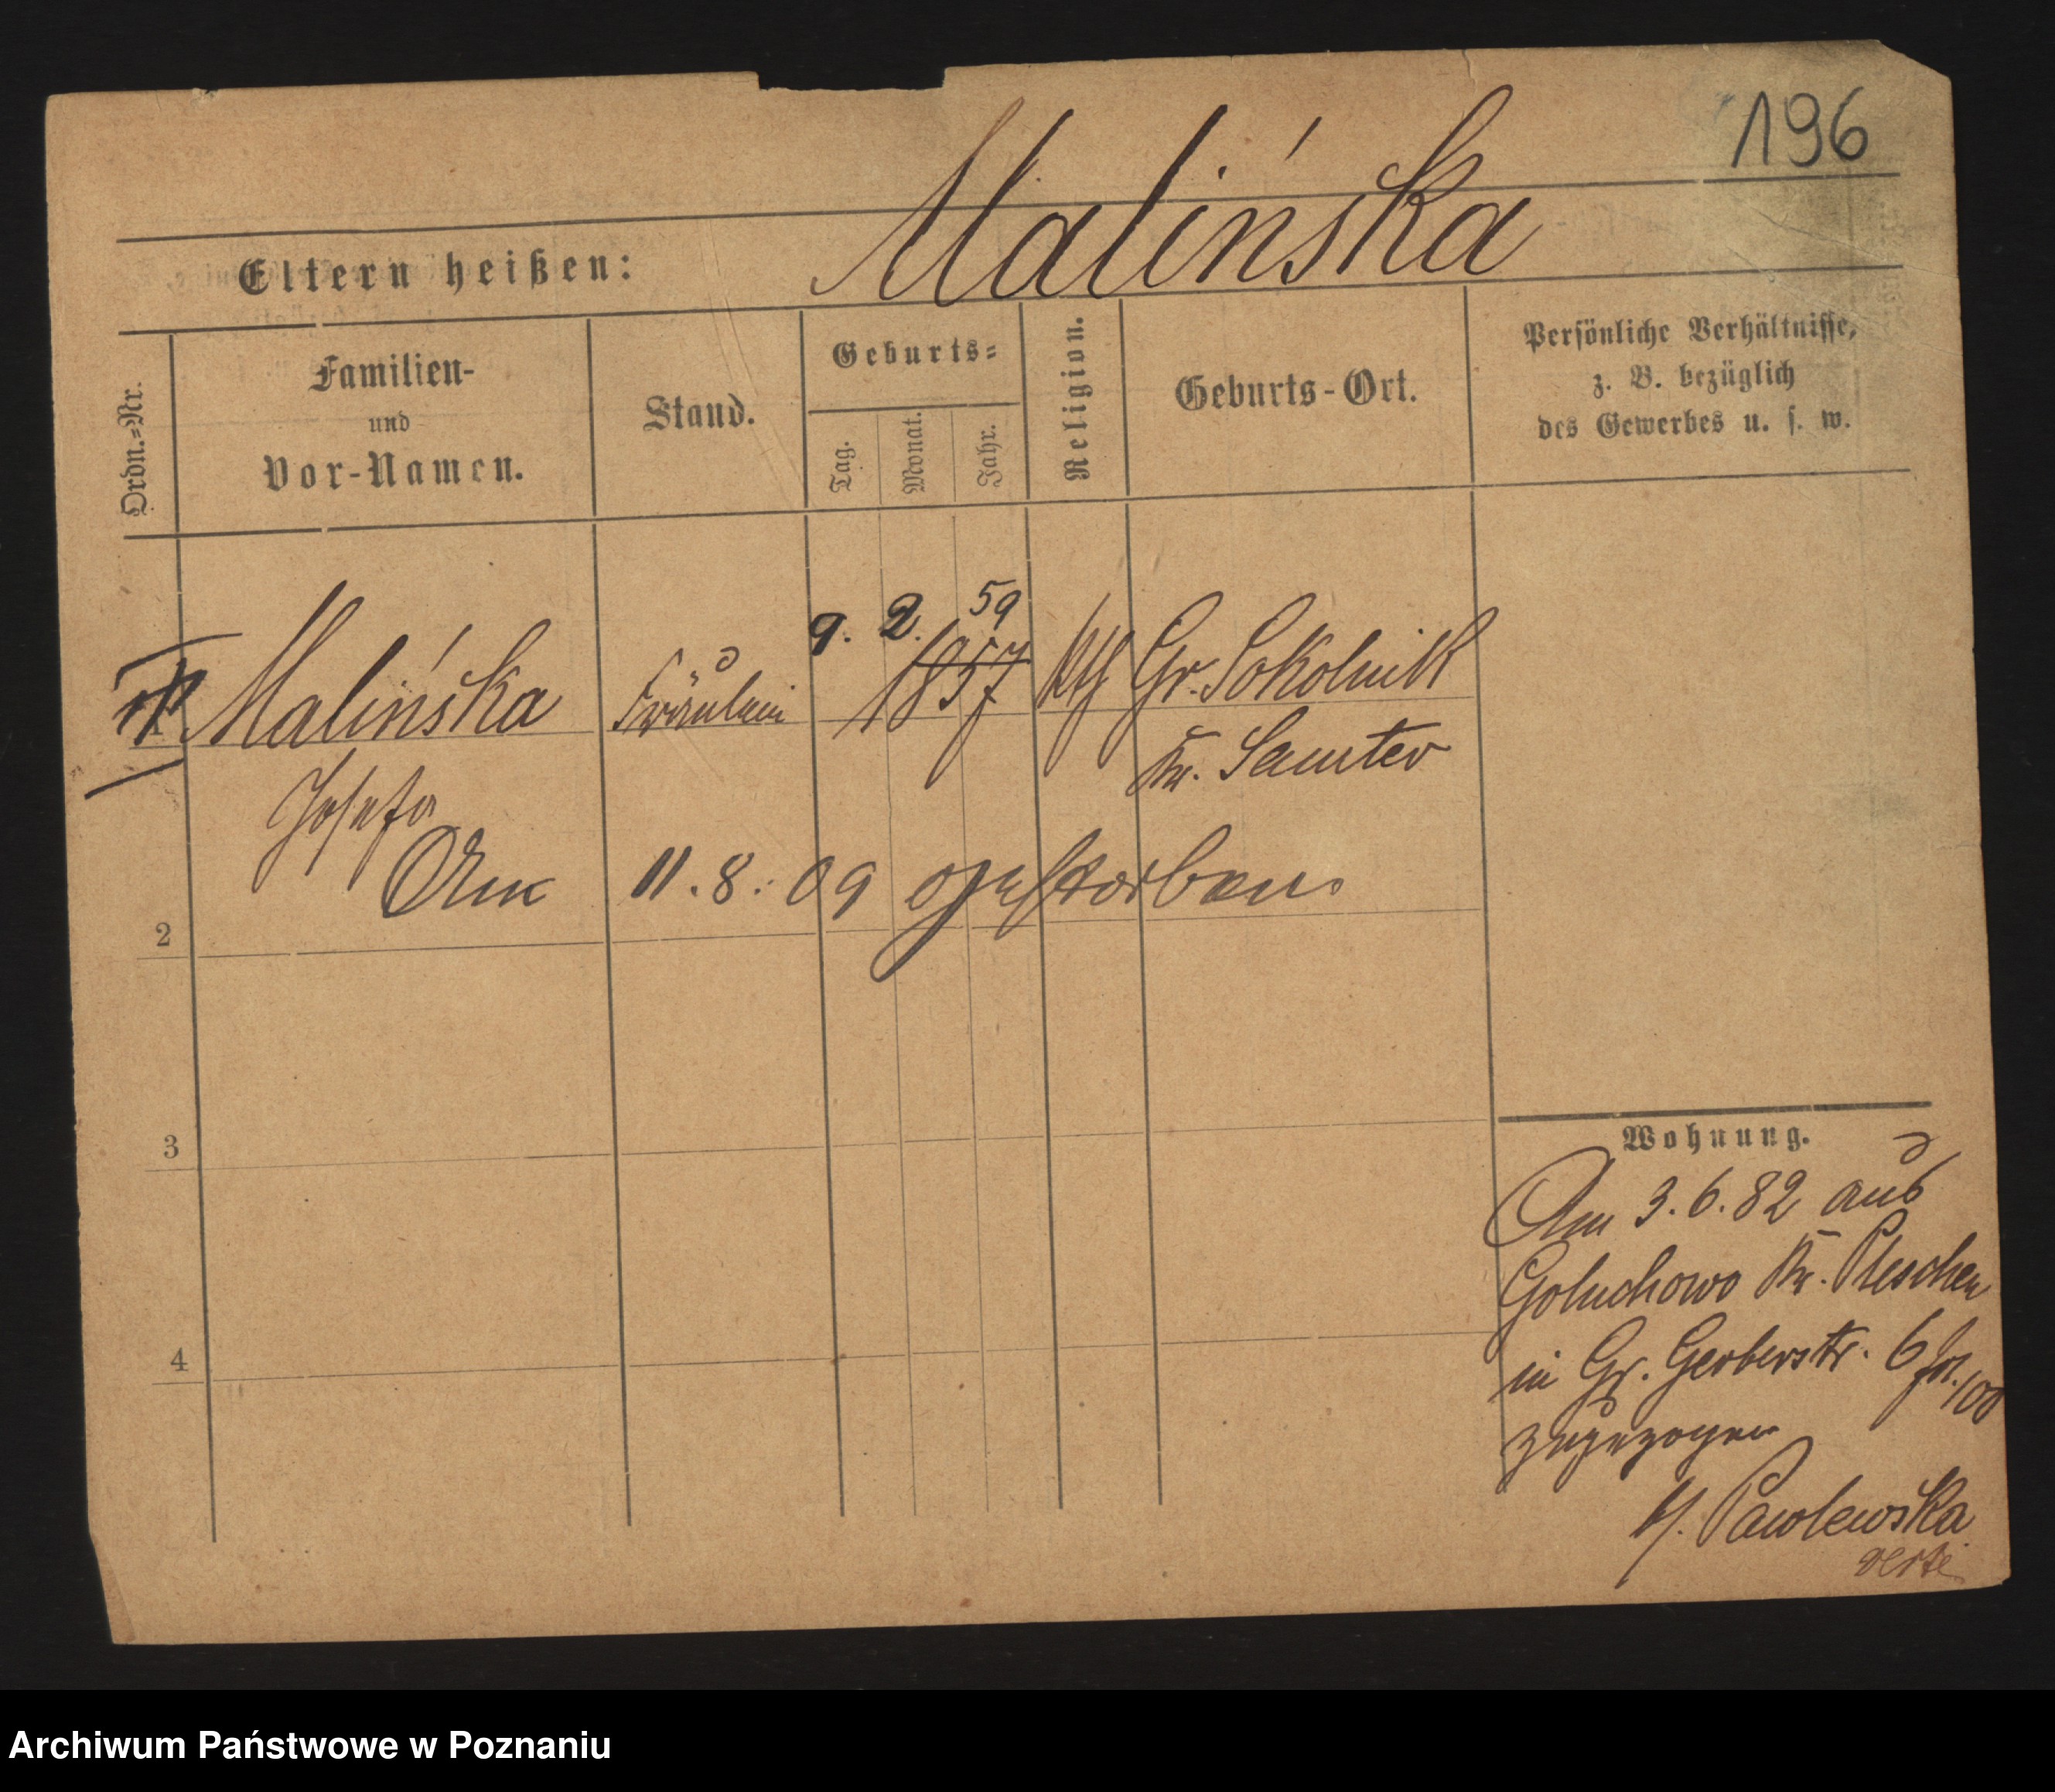 196
Malińska
Eltern heißen:
Ordn.=Nr.
Familien-
und
Vor-Namen.
Stand.
Geburts=
Tag.
Monat.
Jahr.
Religion.
Geburts-Ort.
Persönliche Verhältnisse,
z. B. bezüglich
des Gewerbes u. s. w.
1 Malińska Fräulein 9. 2. 59 1857 kth Gr. Sokolnik
Josefa Kr. Samter
Am 11. 8. 09 gestorben.
2
3
4
Wohnung.
Am 3. 6. 82 aus
Goluchowo Kr. Pleschen
in Gr. Gerberstr. 6
zugezogen
Pawlewska
Archiwum Państwowe w Poznaniu